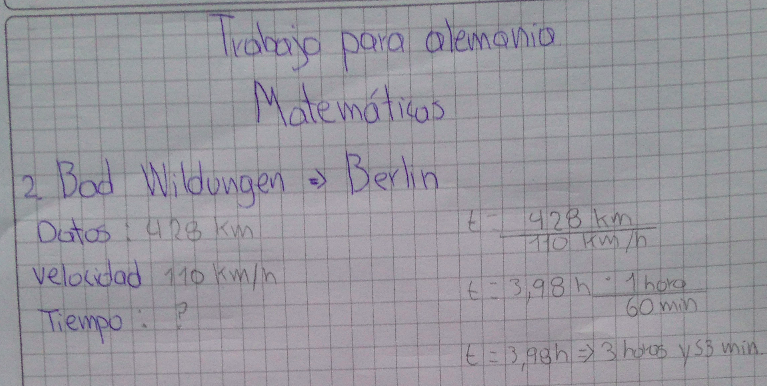 Trabajo para alemania
Matemáticas
2 Bad Wildungen ⇒ Berlin
Datos: 428 km
velocidad 110 km/h
Tiempo: ?
t = 428 km / 110 km/h
t = 3,98 h · 1 hora / 60 min
t = 3,98h ⇒ 3 horas y 53 min